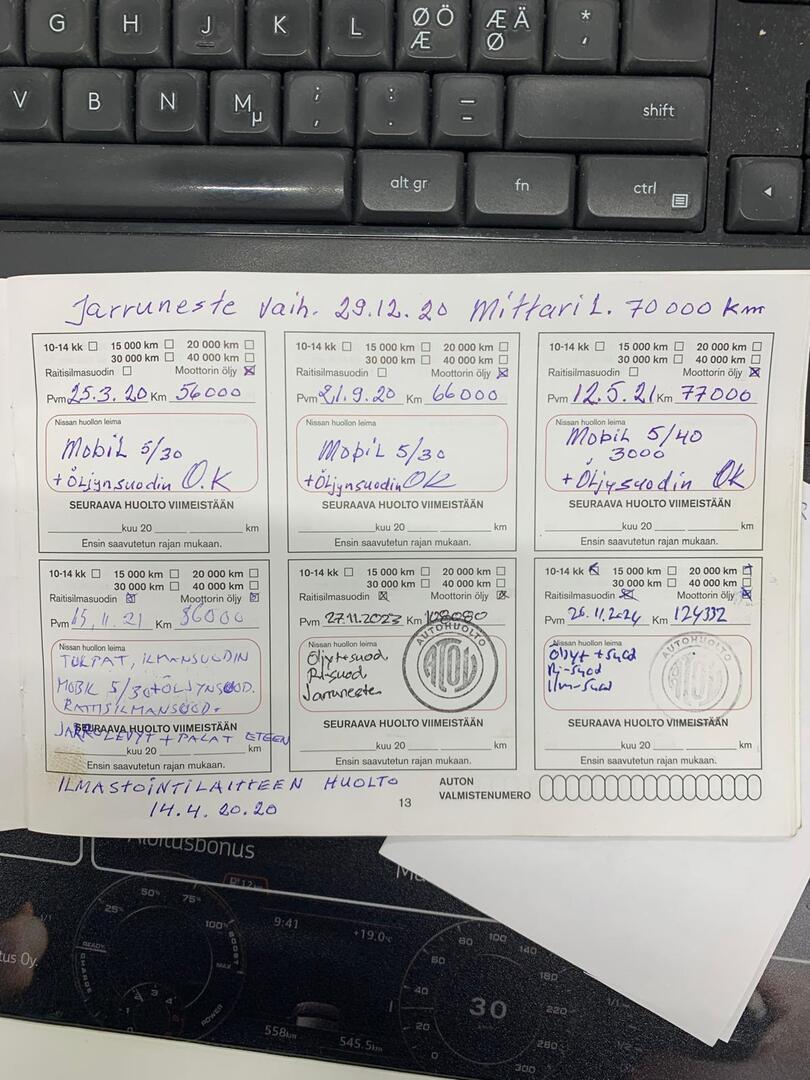 G H J K L Ø Ö Æ Æ Ä Ø * '
V B N M µ ; , : . = _ shift
alt gr fn ctrl
Jarruneste vaih. 29.12.20 Mittari L. 70 000 km
10-14 kk 15 000 km 20 000 km
30 000 km 40 000 km
Raitisilmasuodin Moottorin öljy
Pvm 25.3.20 Km 56000
Nissan huollon leima
Mobil 5/30
+ Öljynsuodin O.K
SEURAAVA HUOLTO VIIMEISTÄÄN
kuu 20 km
Ensin saavutetun rajan mukaan.
10-14 kk 15 000 km 20 000 km
30 000 km 40 000 km
Raitisilmasuodin Moottorin öljy
Pvm 21.9.20 Km 66000
Nissan huollon leima
Mobil 5/30
+ Öljynsuodin OK
SEURAAVA HUOLTO VIIMEISTÄÄN
kuu 20 km
Ensin saavutetun rajan mukaan.
10-14 kk 15 000 km 20 000 km
30 000 km 40 000 km
Raitisilmasuodin Moottorin öljy
Pvm 12.5.21 Km 77000
Nissan huollon leima
Mobil 5/40
3000
+ Öljysuodin OK
SEURAAVA HUOLTO VIIMEISTÄÄN
kuu 20 km
Ensin saavutetun rajan mukaan.
10-14 kk 15 000 km 20 000 km
30 000 km 40 000 km
Raitisilmasuodin Moottorin öljy
Pvm 15.11.21 Km 86000
Nissan huollon leima
TULPAT, ILMANSUODIN
MOBIL 5/30+ÖLJYNSUOD.
RAITISILMANSUOD.
SEURAAVA HUOLTO VIIMEISTÄÄN
JARRULEVYT + PALAT ETEEN
kuu 20 km
Ensin saavutetun rajan mukaan.
10-14 kk 15 000 km 20 000 km
30 000 km 40 000 km
Raitisilmasuodin Moottorin öljy
Pvm 27.11.2023 Km 108080
Nissan huollon leima
Öljyt+suod
Ri-suod
Jarrunestee
AUTOHUOLTO
ATOY
SEURAAVA HUOLTO VIIMEISTÄÄN
kuu 20 km
Ensin saavutetun rajan mukaan.
10-14 kk 15 000 km 20 000 km
30 000 km 40 000 km
Raitisilmasuodin Moottorin öljy
Pvm 26.11.2024 Km 124332
Nissan huollon leima
Öljyt +suod
Ri-suod
Ilm-suod
AUTOHUOLTO
ATOY
SEURAAVA HUOLTO VIIMEISTÄÄN
kuu 20 km
Ensin saavutetun rajan mukaan.
ILMASTOINTILAITTEEN HUOLTO
14.4.20.20
AUTON
VALMISTENUMERO
13
Aloitusbonus
tus Oy.
25% 50% 75% 100%
READY CHARGE POWER BOOST MAX
9:41 +19.0°C
558km 545.5km
0 20 40 60 80 100 140 180 220 260 300
30